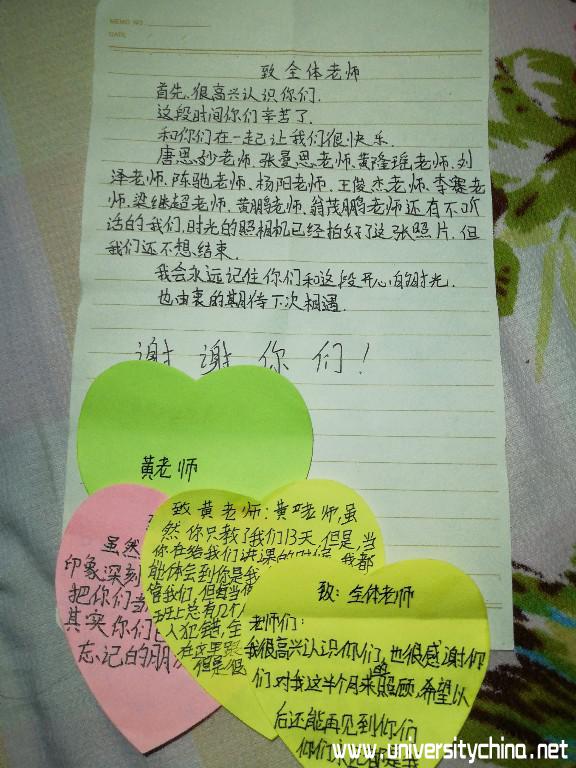 MEMO NO
DATE
致 全体老师
首先,很高兴认识你们.
这段时间你们辛苦了.
和你们在一起让我们很快乐.
唐思妙老师,张曼恩老师,黄隆瑶老师,刘
泽老师,陈驰老师,杨阳老师,王俊杰老师,李赛老
师,梁继超老师,黄鹏老师,翁茂鹏老师还有不听
话的我们,时光的照相机已经拍好了这张照片,但
我们还不想结束.
我会永远记住你们和这段开心的时光.
也由衷的期待下次相遇.
谢谢你们!
黄老师
虽然
印象深刻
把你们当
其实你们
忘记的朋
致黄老师:黄老师,虽
然你只教了我们13天,但是,当
你在给我们讲课的时候,我都
能体会到你是我
管我们,但每当
班上总有几个人
人犯错,全
但是很
致:全体老师
老师们:
我很高兴认识你们,也很感谢你
们对我这半个月来的照顾,希望以
后还能再见到你们
www.universitychina.net